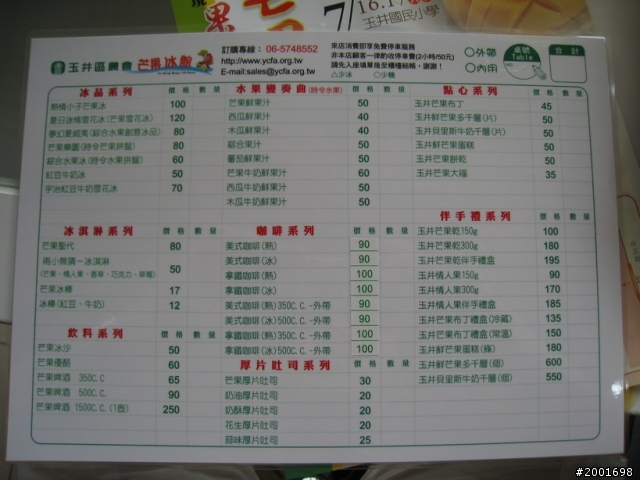 7/16.17
玉井國民小學
玉井區農會 芒果冰館
訂購專線： 06-5748552
http://www.ycfa.org.tw
E-mail:sales@ycfa.org.tw
來店消費即享免費停車服務
非本店顧客一律酌收停車費(2小時/50元)
請先入座填單後至櫃檯結帳，謝謝！
□少冰 □少糖
○外帶
○內用
桌號
Table
合計
冰品系列 價格 數量
熱情小子芒果冰 100
夏日迷情雪花冰(芒果雪花冰) 120
夢幻夏威夷(綜合水果創意冰品) 80
芒果樂園(時令芒果拼盤) 80
綜合水果冰(時令水果拼盤) 60
紅豆牛奶冰 50
宇治紅豆牛奶雪花冰 70
冰淇淋系列 價格 數量
芒果聖代 80
兩小無猜-冰淇淋 50
17
冰棒(紅豆、牛奶) 12
飲料系列 價格 數量
芒果冰沙 50
芒果優酪 60
芒果啤酒 350C.C 65
芒果啤酒 500C.C. 90
芒果啤酒 1500C.C.(1壺) 250
水果變奏曲(時令水果) 價格 數量
芒果鮮果汁 50
西瓜鮮果汁 40
木瓜鮮果汁 40
綜合果汁 50
蕃茄鮮果汁 50
芒果牛奶鮮果汁 60
西瓜牛奶鮮果汁 50
木瓜牛奶鮮果汁 50
咖啡系列 價格 數量
美式咖啡(熱) 90
美式咖啡(冰) 90
拿鐵咖啡(熱) 100
拿鐵咖啡(冰) 100
美式咖啡(熱)350C.C.-外帶 90
美式咖啡(冰)500C.C.-外帶 90
拿鐵咖啡(熱)350C.C.-外帶 100
拿鐵咖啡(冰)500C.C.-外帶 100
厚片吐司系列 價格 數量
芒果厚片吐司 30
奶油厚片吐司 20
奶酥厚片吐司 20
花生厚片吐司 20
蒜味厚片吐司 25
點心系列 價格 數量
玉井芒果布丁 45
玉井鮮芒果多千層(片) 50
玉井貝里斯牛奶千層(片) 50
玉井鮮芒果蛋糕 50
玉井芒果餅乾 50
玉井芒果大福 35
伴手禮系列 價格 數量
玉井芒果乾150g 100
玉井芒果乾300g 180
玉井芒果乾伴手禮盒 195
玉井情人果150g 90
玉井情人果300g 170
玉井情人果伴手禮盒 185
玉井芒果布丁禮盒(冷藏) 135
玉井芒果布丁禮盒(常溫) 150
玉井鮮芒果蛋糕(條) 180
玉井鮮芒果多千層(個) 600
玉井貝里斯牛奶千層(個) 550
#2001698